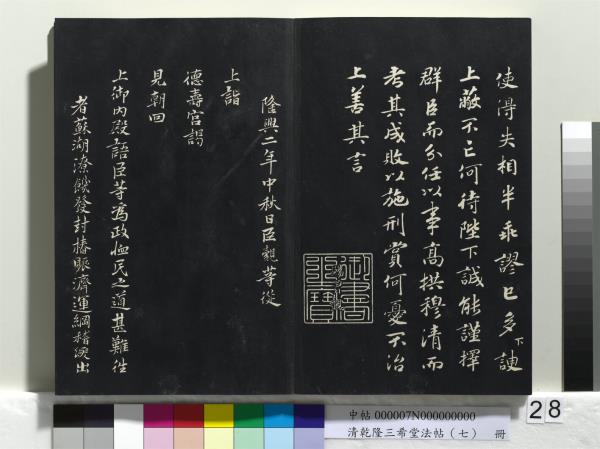 使得失相半乖謬已多下諛
上蔽不亡何待陛下誠能謹擇
群臣而分任以事高拱穆清而
考其成敗以施刑賞何憂不治
上善其言
御書之寶
隆興二年中秋日臣觀等從
上詣
德壽宮謁
見朝回
上御內殿語臣等為政恤民之道甚難往
者蘇湖潦饑發封樁賑濟運綱稽緩出
中帖 000007N000000000
清乾隆三希堂法帖（七） 冊
28